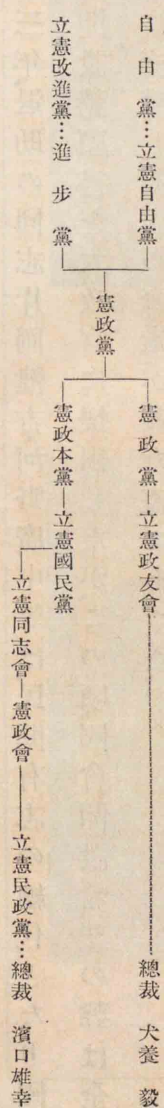 自由黨…立憲自由黨
立憲改進黨…進步黨
憲政黨
憲政黨—立憲政友會………總裁 犬養 毅
憲政本黨—立憲國民黨
立憲同志會—憲政會——立憲民政黨…總裁 濱口雄幸